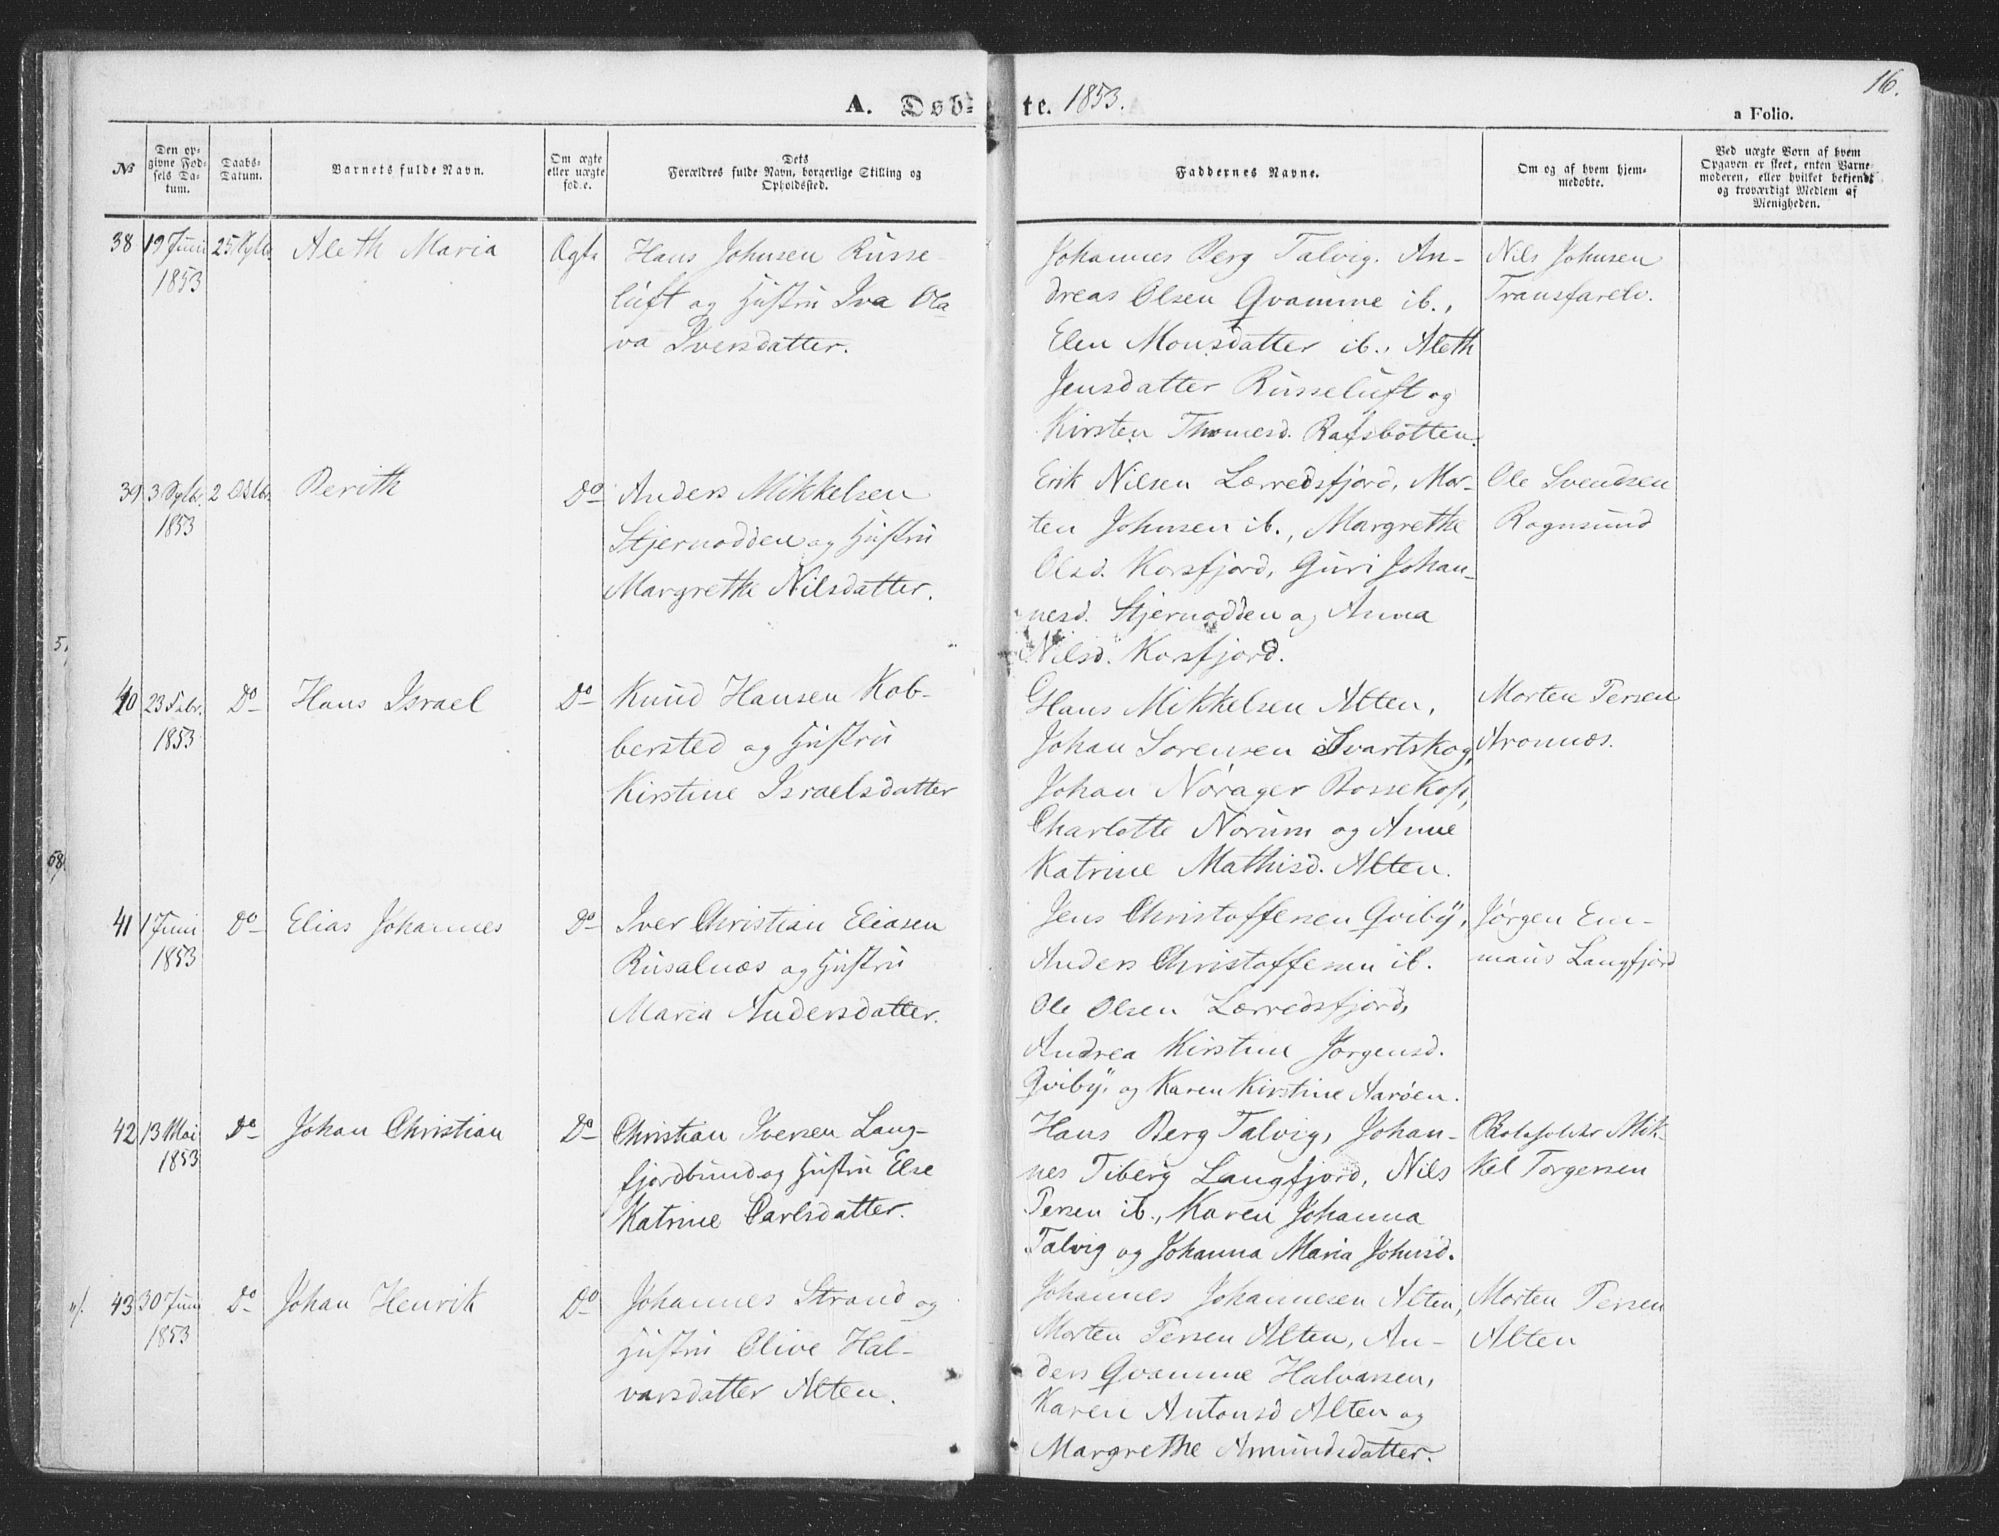 16.
A. Døbte. 1853.
a Folio.
No
Den opgivne Fødsels Datum.
Daabs-Datum.
Barnets fulde Navn.
Om ægte eller uægte fød.e.
Dets Forældres fulde Navn, borgerlige Stilling og Opholdssted.
Faddernes Navne.
Om og af hvem hjemmedøbte.
Ved uægte Born af hvem Opgaven er skeet, enten Barnemoderen, eller hvilket bekjendt og troværdigt Medlem af Menigheden.
38 19 Juni 1853 25 Sptbr. Aleth Maria Ægte
Hans Johnsen Russe-
luft og Hustru Iva Ola-
va Iversdatter.
Johannes Berg Talvig. An-
dreas Olsen Qvamme ib.,
Elen Monsdatter ib., Aleth
Jensdatter Russeluft og
Kirsten Thomesd. Rafsbotten.
Nils Johnsen
Transfarelv.
39 3 Sptbr. 1853 2 Octbr. Berith Do
Anders Mikkelsen
Stjernodden og Hustru
Margrethe Nilsdatter.
Erik Nilsen Lærredsfjord, Mor-
ten Johnsen ib., Margrethe
Olsd. Korsfjord, Guri Johan-
nesd. Stjernodden og Anna
Nilsd. Korsfjord.
Ole Svendsen
Rognsund
40 23 Febr. 1853 Do Hans Israel Do
Knud Hansen Kob-
bersted og Hustru
Kirstine Israelsdatter
Hans Mikkelsen Alten,
Johan Sørensen Svartskog,
Johan Nørager Bossekop,
Charlotte Norum og Anne
Katrine Mathisd. Alten.
Morten Persen
Aronnæs.
41 1 Juni 1853 Do Elias Johannes Do
Iver Christian Eliasen
Rusalnæs og Hustru
Maria Andersdatter.
Jens Christoffersen Qviby,
Anders Christoffersen ib.
Ole Olsen Lærredsfjord,
Andrea Kirstine Jørgensd.
Qviby, og Karen Kirstine Aarøen.
Jørgen Em-
maus Langfjord
42 13 Mai 1853 Do Johan Christian Do
Christian Iversen Lang-
fjordbund og Hustru Else
Katrine Carlsdatter.
Hans Berg Talvig, Johan-
nes Tiberg Langfjord, Nils
Persen ib., Karen Johanna
Talvig og Johanna Maria Johnsd.
Mik-
kel Torgersen
43 30 Juni 1853 Do Johan Henrik Do
Johannes Strand og
Hustru Olive Hal-
varsdatter Alten.
Johannes Johannesen Alten,
Morten Persen Alten, An-
ders Qvamme Halvarsen,
Karen Antonsd Alten og
Margrethe Amundsdatter.
Morten Persen
Alten